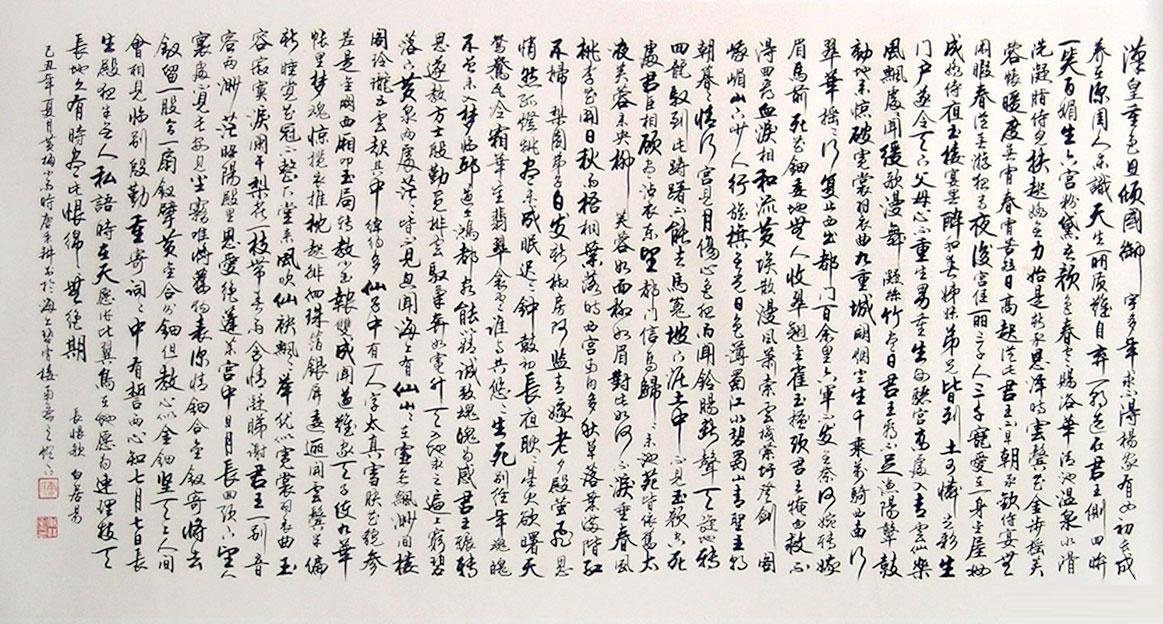 漢皇重色思傾國御宇多年求不得楊家有女初長成
养在深閨人未識天生麗質難自棄一朝選在君王側回眸
一笑百媚生六宮粉黛無顏色春寒賜浴華清池温泉水滑
洗凝脂侍兒扶起嬌無力始是新承恩澤時雲鬢花金步搖芙
蓉帳暖度春宵春宵苦短日高起從此君王不早朝承歡侍宴無
閑暇春從春游夜專夜後宮佳麗三千人三千寵愛在一身金屋妝
成嬌侍夜玉樓宴罷醉和春姊妹弟兄皆列土可憐光彩生
門户遂令天下父母心不重生男重生女驪宮高處入青雲仙樂
風飄處處聞緩歌漫舞凝絲竹盡日君王看不足漁陽鼙鼓
動地来驚破霓裳羽衣曲九重城闕煙塵生千乘萬騎西南行
翠華搖搖行復止西出都門百余里六軍不发無奈何婉轉娥
眉馬前死花鈿委地無人收翠翹金雀玉搔頭君王掩面救不
得回看血淚相和流黄埃散漫風蕭索雲棧縈紆登劍閣
峨嵋山下少人行旌旗無光日色薄蜀江水碧蜀山青聖主朝
朝暮暮情行宮見月傷心色夜雨聞鈴腸斷聲天旋地轉
回龍馭到此躊躇不能去馬嵬坡下泥土中不見玉顏空死
處君臣相顧盡沾衣東望都門信馬歸歸来池苑皆依舊太
液芙蓉未央柳芙蓉如面柳如眉對此如何不淚垂春風
桃李花開日秋雨梧桐葉落時西宮南内多秋草落葉滿階紅
不掃梨園弟子白发新椒房阿監青娥老夕殿螢飛思
悄然孤燈挑盡未成眠遲遲鐘鼓初長夜耿耿星河欲曙天
鴛鴦瓦冷霜華重翡翠衾寒誰與共悠悠生死别經年魂魄
不曾来入夢臨邛道士鴻都客能以精誠致魂魄為感君王輾轉
思遂教方士殷勤覓排空馭氣奔如電升天入地求之遍上窮碧
落下黄泉兩處茫茫皆不見忽聞海上有仙山山在虛無縹緲間樓
閣玲瓏五雲起其中綽約多仙子中有一人字太真雪膚花貌參
差是金闕西廂叩玉扃轉教小玉報雙成聞道漢家天子使九華
帳里夢魂惊攬衣推枕起徘徊珠箔銀屏邐迤開雲鬢半偏
新睡覺花冠不整下堂来風吹仙袂飄飄舉猶似霓裳羽衣曲玉
容寂寞淚闌干梨花一枝帶春雨含情凝睇謝君王一别音
容兩渺茫昭陽殿里恩愛絕蓬萊宮中日月長回頭下望人
寰處不見長安見塵霧唯將舊物表深情鈿合金釵寄將去
釵留一股合一扇釵擘黄金合分鈿但教心似金鈿堅天上人間
會相見臨别殷勤重寄詞詞中有誓兩心知七月七日長
生殿夜半無人私語時在天願作比翼鳥在地願為連理枝天
長地久有時盡此恨綿綿無絕期 長恨歌 白居易
己丑年夏月黄梅